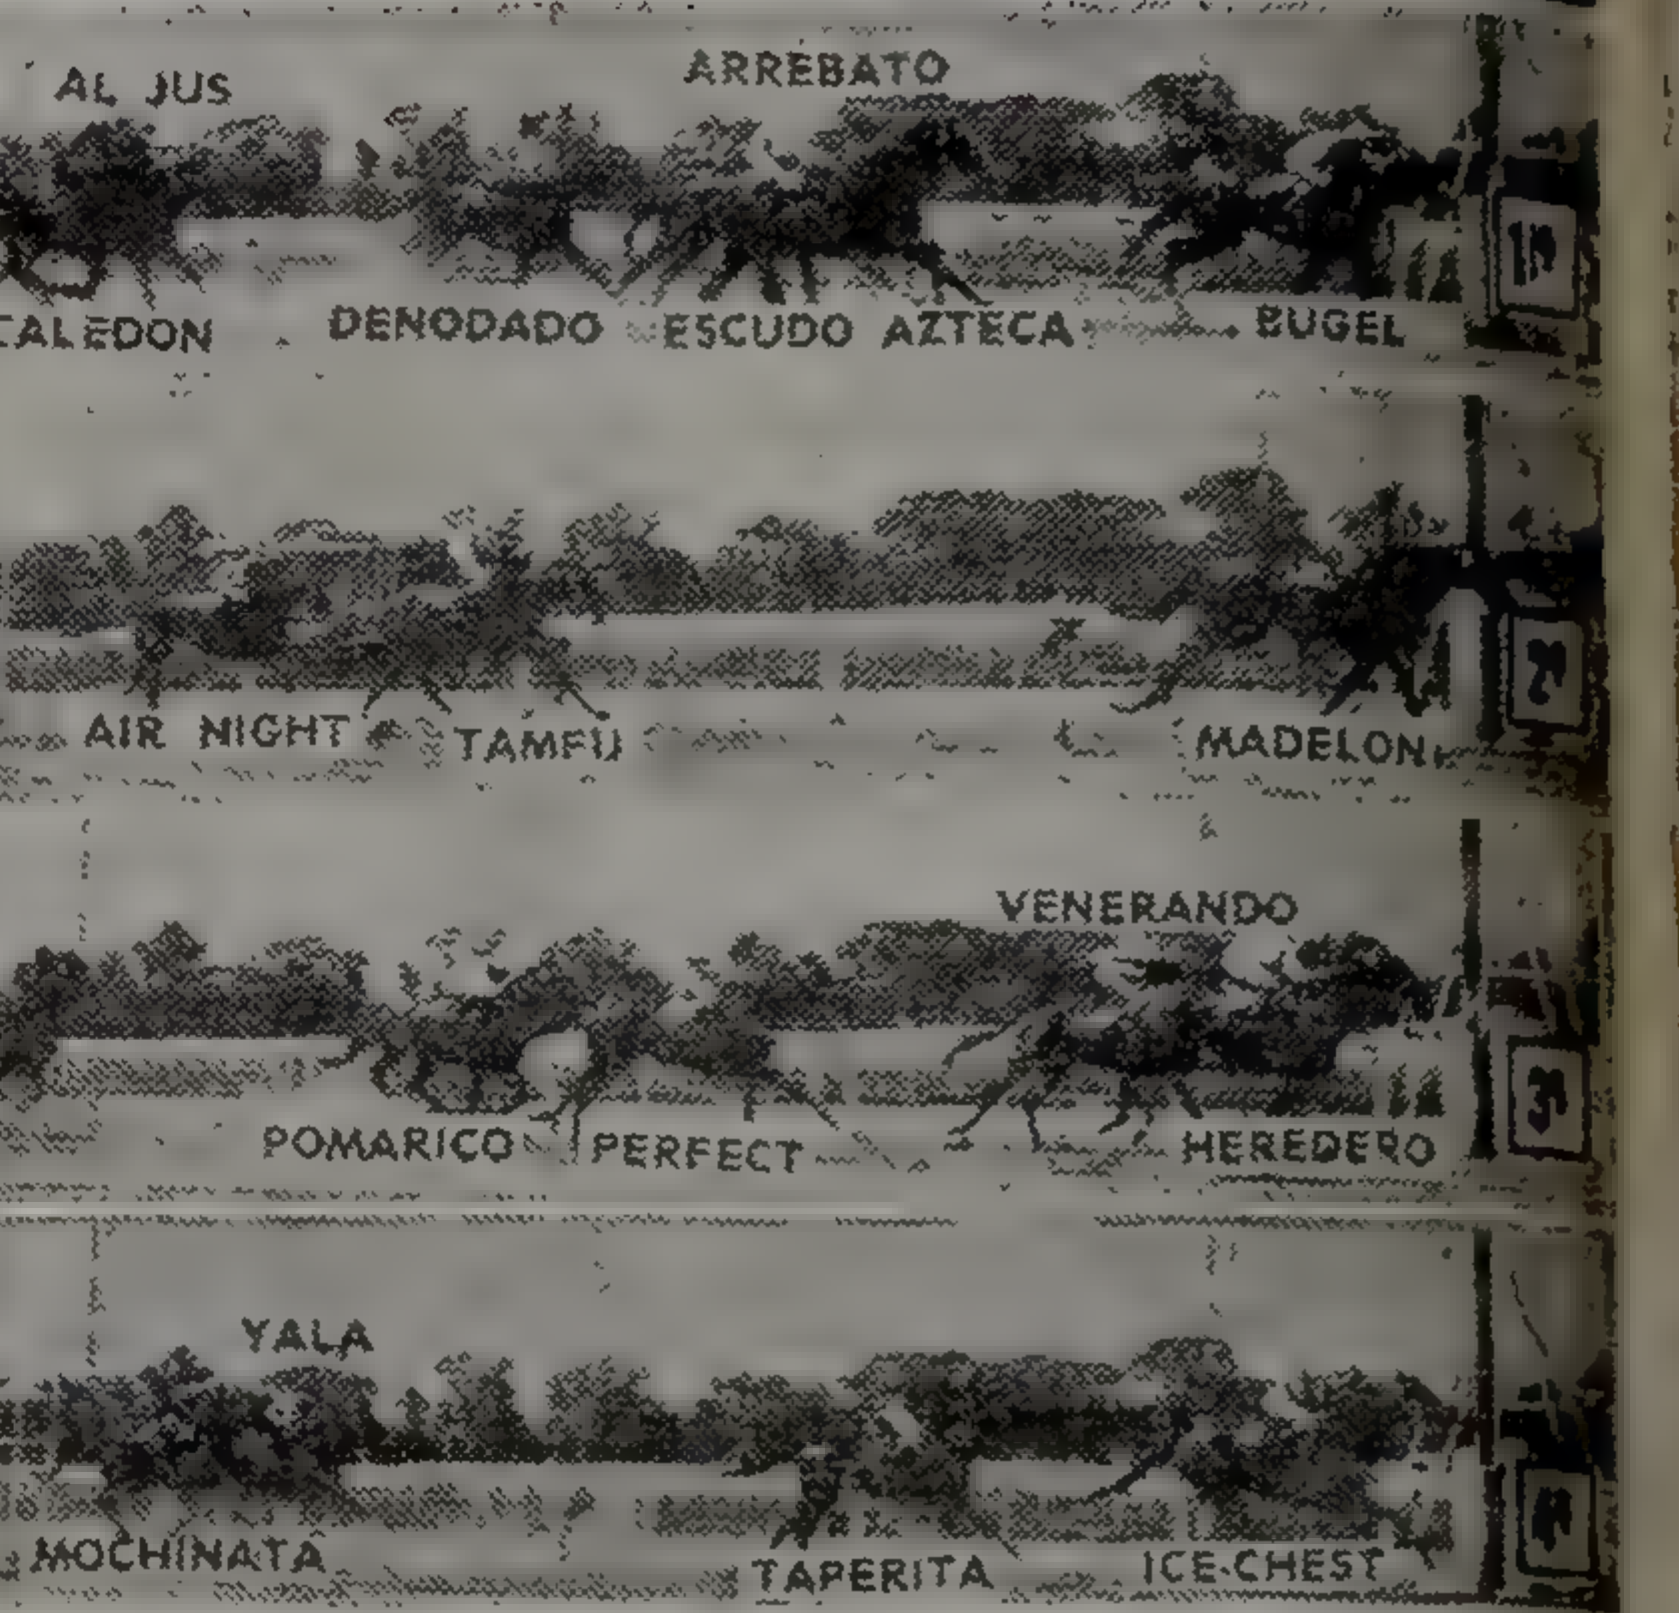 AL JUS ARREBATO
CALEDON DENODADO ESCUDO AZTECA BUGEL
1
AIR NIGHT TAMFU MADELON
2
VENERANDO
POMARICO PERFECT HEREDERO
3
YALA
MOCHINATA TAPERITA ICE-CHEST
4